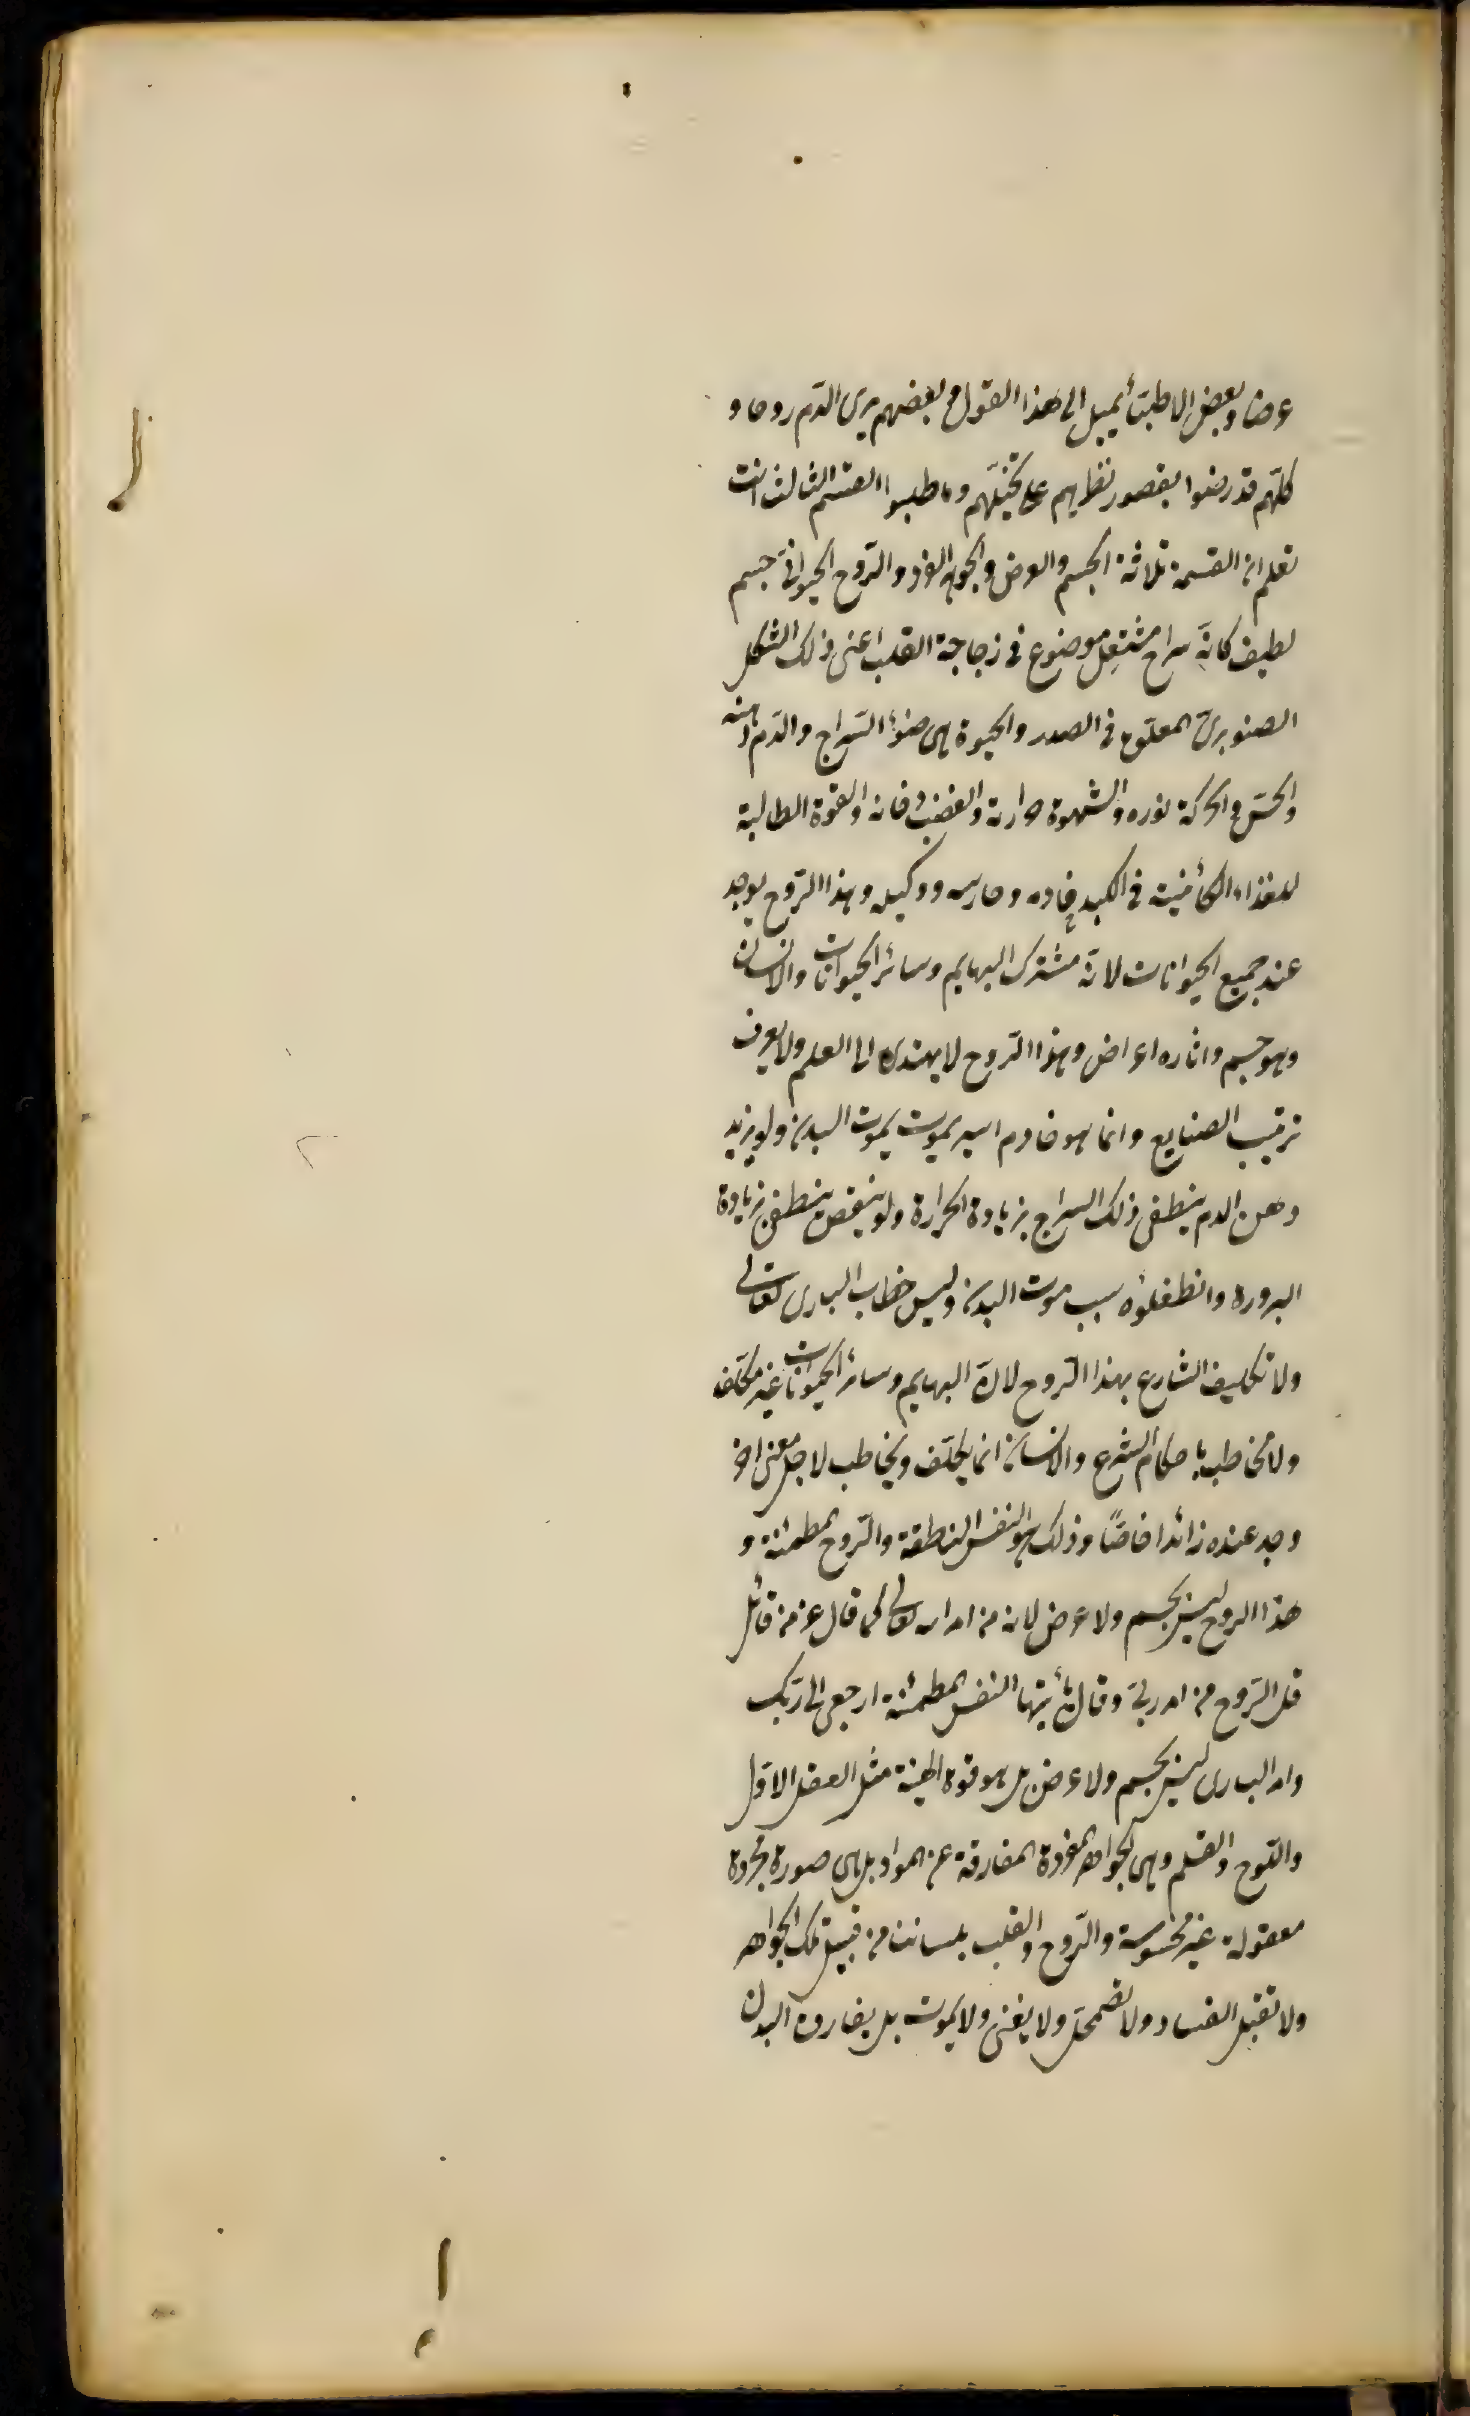 عرضا وبعض الاطبتأ يميل الى هذا القول وبعضهم يرى الدّم روحا و
كلّهم قد رضوا بقصور نظرهم على تخيّلهم وما طلبوا القسم الثالث انت
تعلم ان القسمة ثلاثة الجسم والعرض والجوهر الفرد والرّوح الحيوانىّ جسم
لطيف كانّه سراج مشتعل موضوع فى زجاجة القلب اعنى ذلك الشكل
الصنوبرىّ المعلّق فى الصدر والحيوة هى ضوء السّراج والدّم دهنه
والحسّ والحركة نوره والشهوة حرارته والغضب دخانه والقوة الطالبة
للغذاء الكائنة فى الكبد خادمه وحارسه ووكيله وهذا الرّوح يوجد
عند جميع الحيوانات لانّه مشترك البهايم وسائر الحيوانات والانسان
وهو جسم واثاره اعراض وهذا الرّوح لا يهتدى الى العلم ولا يعرف
ترتيب الصنايع وانما هو خادم اسير يموت بموت البدن ولو يزيد
دهن الدم ينطفى ذلك السراج بزيادة الحرارة ولو ينقص ينطفى بزيادة
البرودة وانطفاؤه سبب موت البدن وليس خطاب البارى تعالى
ولا تكليف الشارع بهذا الرّوح لانّ البهايم وسائر الحيوانات غير مكلّف
ولا مخاطب باحكام الشرع والانسان انما يكلّف ويخاطب لاجل معنى اخر
وجد عنده زائدا خاصّا وذلك هو النفس الناطقة والرّوح المطمئنة و
هذا الروح ليس بجسم ولا عرض لانه من امر الله تعالى كما قال عز من قائل
قل الرّوح من امر ربّى وقال يا أيّتها النفس المطمئنة ارجعى الى ربّك
وامر البارى ليس بجسم ولا عرض بل هو قوة الهيّة مثل العقل الاوّل
واللّوح والقلم وهى الجواهر المفردة المفارقة عن المواد بل هى صورة مجردة
معقولة غير محسوسة والرّوح والقلب بلساننا من قبيل تلك الجواهر
ولا تقبل الفساد ولا تضمحلّ ولا يفنى ولا يموت بل يفارق البدن